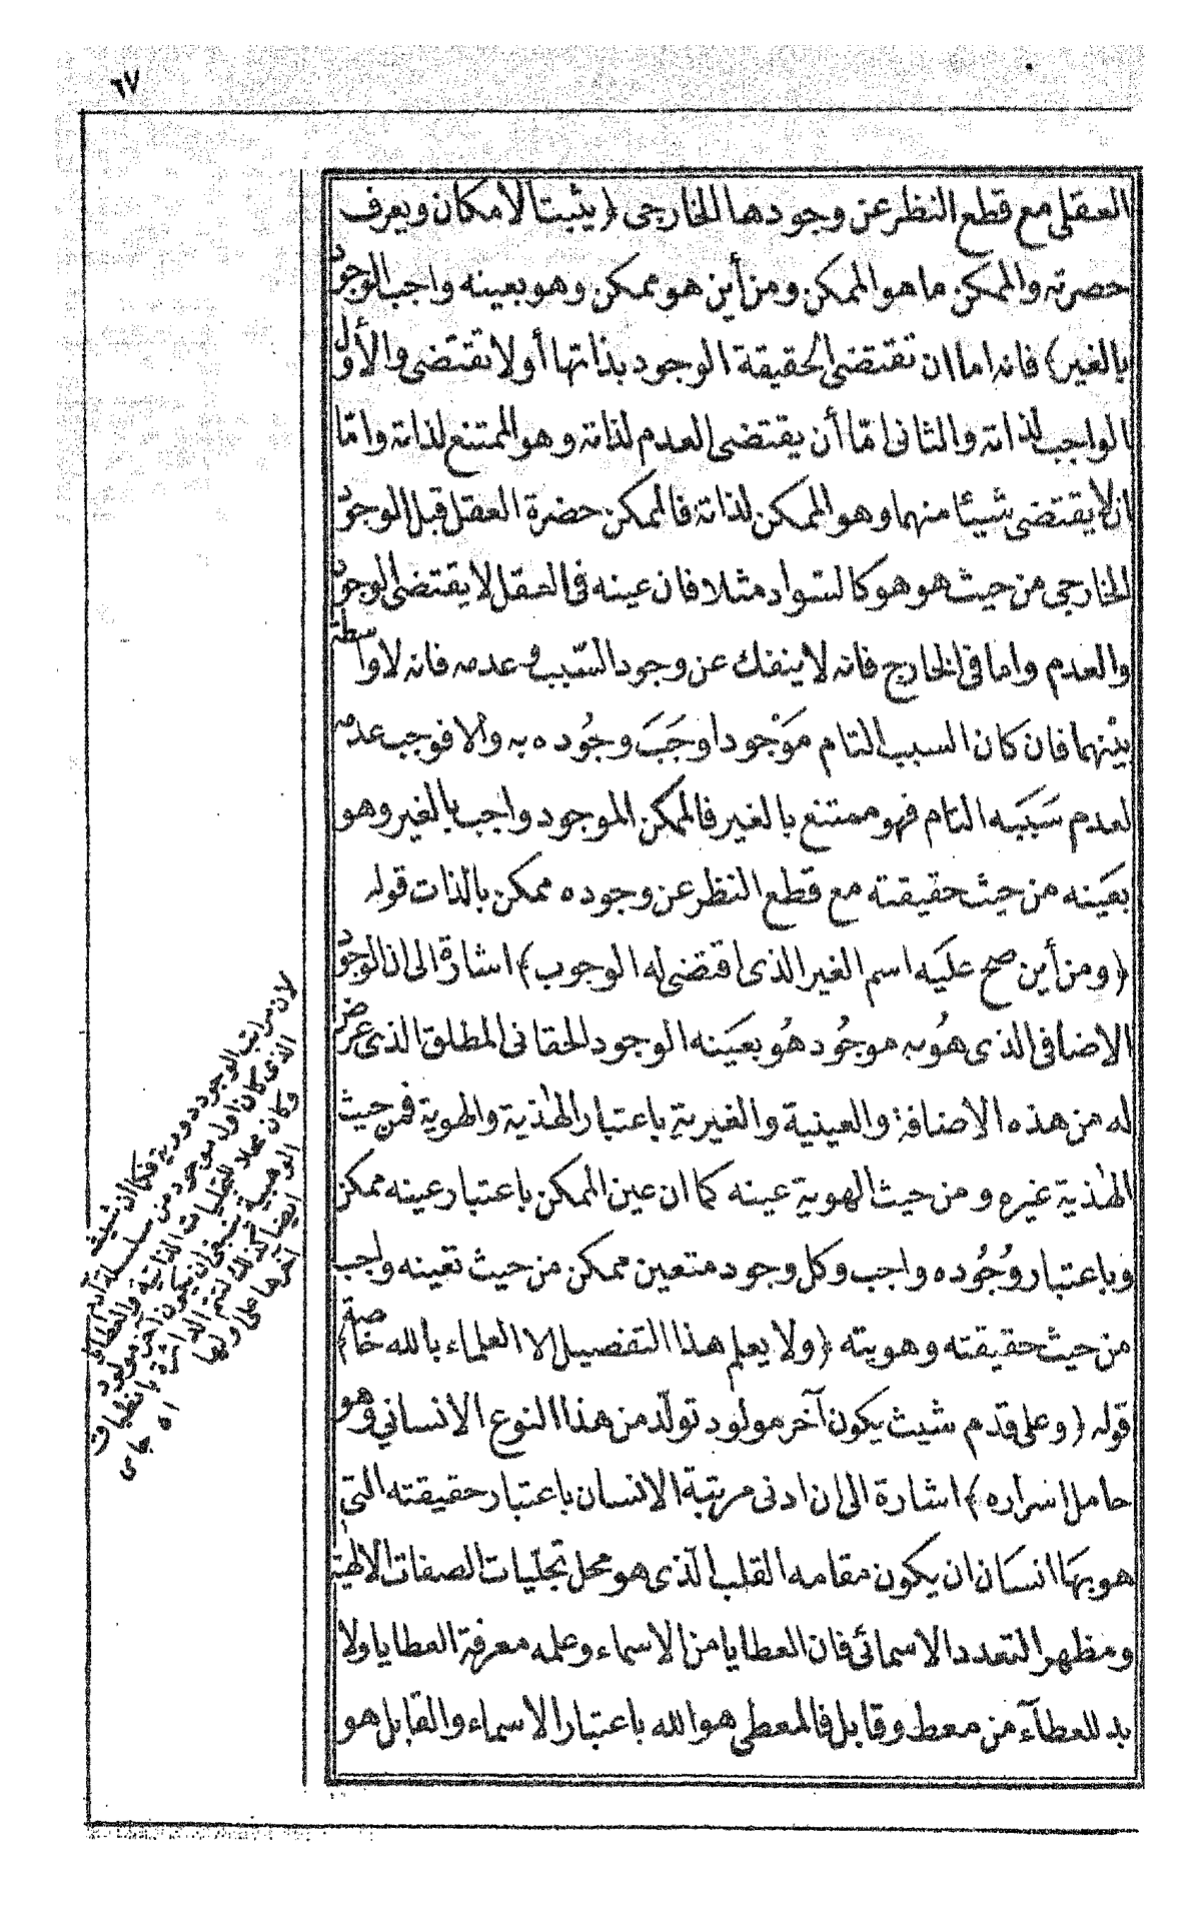 ٦٧
العقلى مع قطع النظر عن وجودها الخارجى ﴿يثبت الامكان ويعرف
حضرته والممكن ما هو الممكن ومن أين هو ممكن وهو بعينه واجب الوجود
بالغير﴾ فانه اما ان تقتضى الحقيقة الوجود بذاتها أولا تقتضى والأول
الواجب لذاته والثانى امّا أن يقتضى العدم لذاته وهو الممتنع لذاته وامّا
ان لا يقتضى شيئا منهما وهو الممكن لذاته فالممكن حضرة العقل قبل الوجود
الخارجى من حيث هو هو كالسواد مثلا فان عينه فى العقل لا يقتضى الوجود
والعدم واما فى الخارج فانه لا ينفك عن وجود السّبب وعدمه فانه لا واسطة
بينهما فان كان السبب التام مَوْجودا وجَبَ وجُوده به والا فوجب عدمه
لعدم سَبَبه التام فهو ممتنع بالغير فالممكن الموجود واجب بالغير وهو
بعَينه من حيث حقيقته مع قطع النظر عن وجوده ممكن بالذات قوله
﴿ومن أين صح عليَه اسم الغير الذى اقتضى له الوجوب﴾ اشارة الى ان الوجود
الاضافى الذى هُو به موجُود هُو بعَينه الوجود الحقانى المطلق الذى عرض
له من هذه الاضافة والعينية والغيرية باعتبار الهٰذية والهوية فمن حيث
الهٰذية غيره ومن حيث الهوية عينه كما ان عين الممكن باعتبار عينه ممكن
وباعتبار وُجُوده واجب وكل وجود متعين ممكن من حيث تعينه واجب
من حيث حقيقته وهويته ﴿ولا يعلم هذا التفصيل الا العلماء بالله خاصة﴾
قوله ﴿وعلى قدم شيث يكون آخر مولود تولّد من هذا النوع الانسانى وهو
حامل اسراره﴾ اشارة الى ان ادنى مرتبة الانسان باعتبار حقيقته التى
هو بهَا انسَان ان يكون مقامه القلب الّذى هو محل تجلّيات الصفات الالهية
ومظهر التعدد الاسمائى فان العطايا من الاسماء وعلمه معرفة العطايا ولا
بد للعطآء من معط وقابل فالمعطى هو الله باعتبار الاسماء والقابل هو
لان مراتب الوجود دورية فكما ان شيث
الذى كان اول موجود من سلسلة آدم
وكان محلا للتجليات الذاتية والعطايا
الوهبية ينبغى ان يكون آخر مولود
ايضا كذلك لتتم الدائرة بانطباق
آخرها على اولها اه جامى